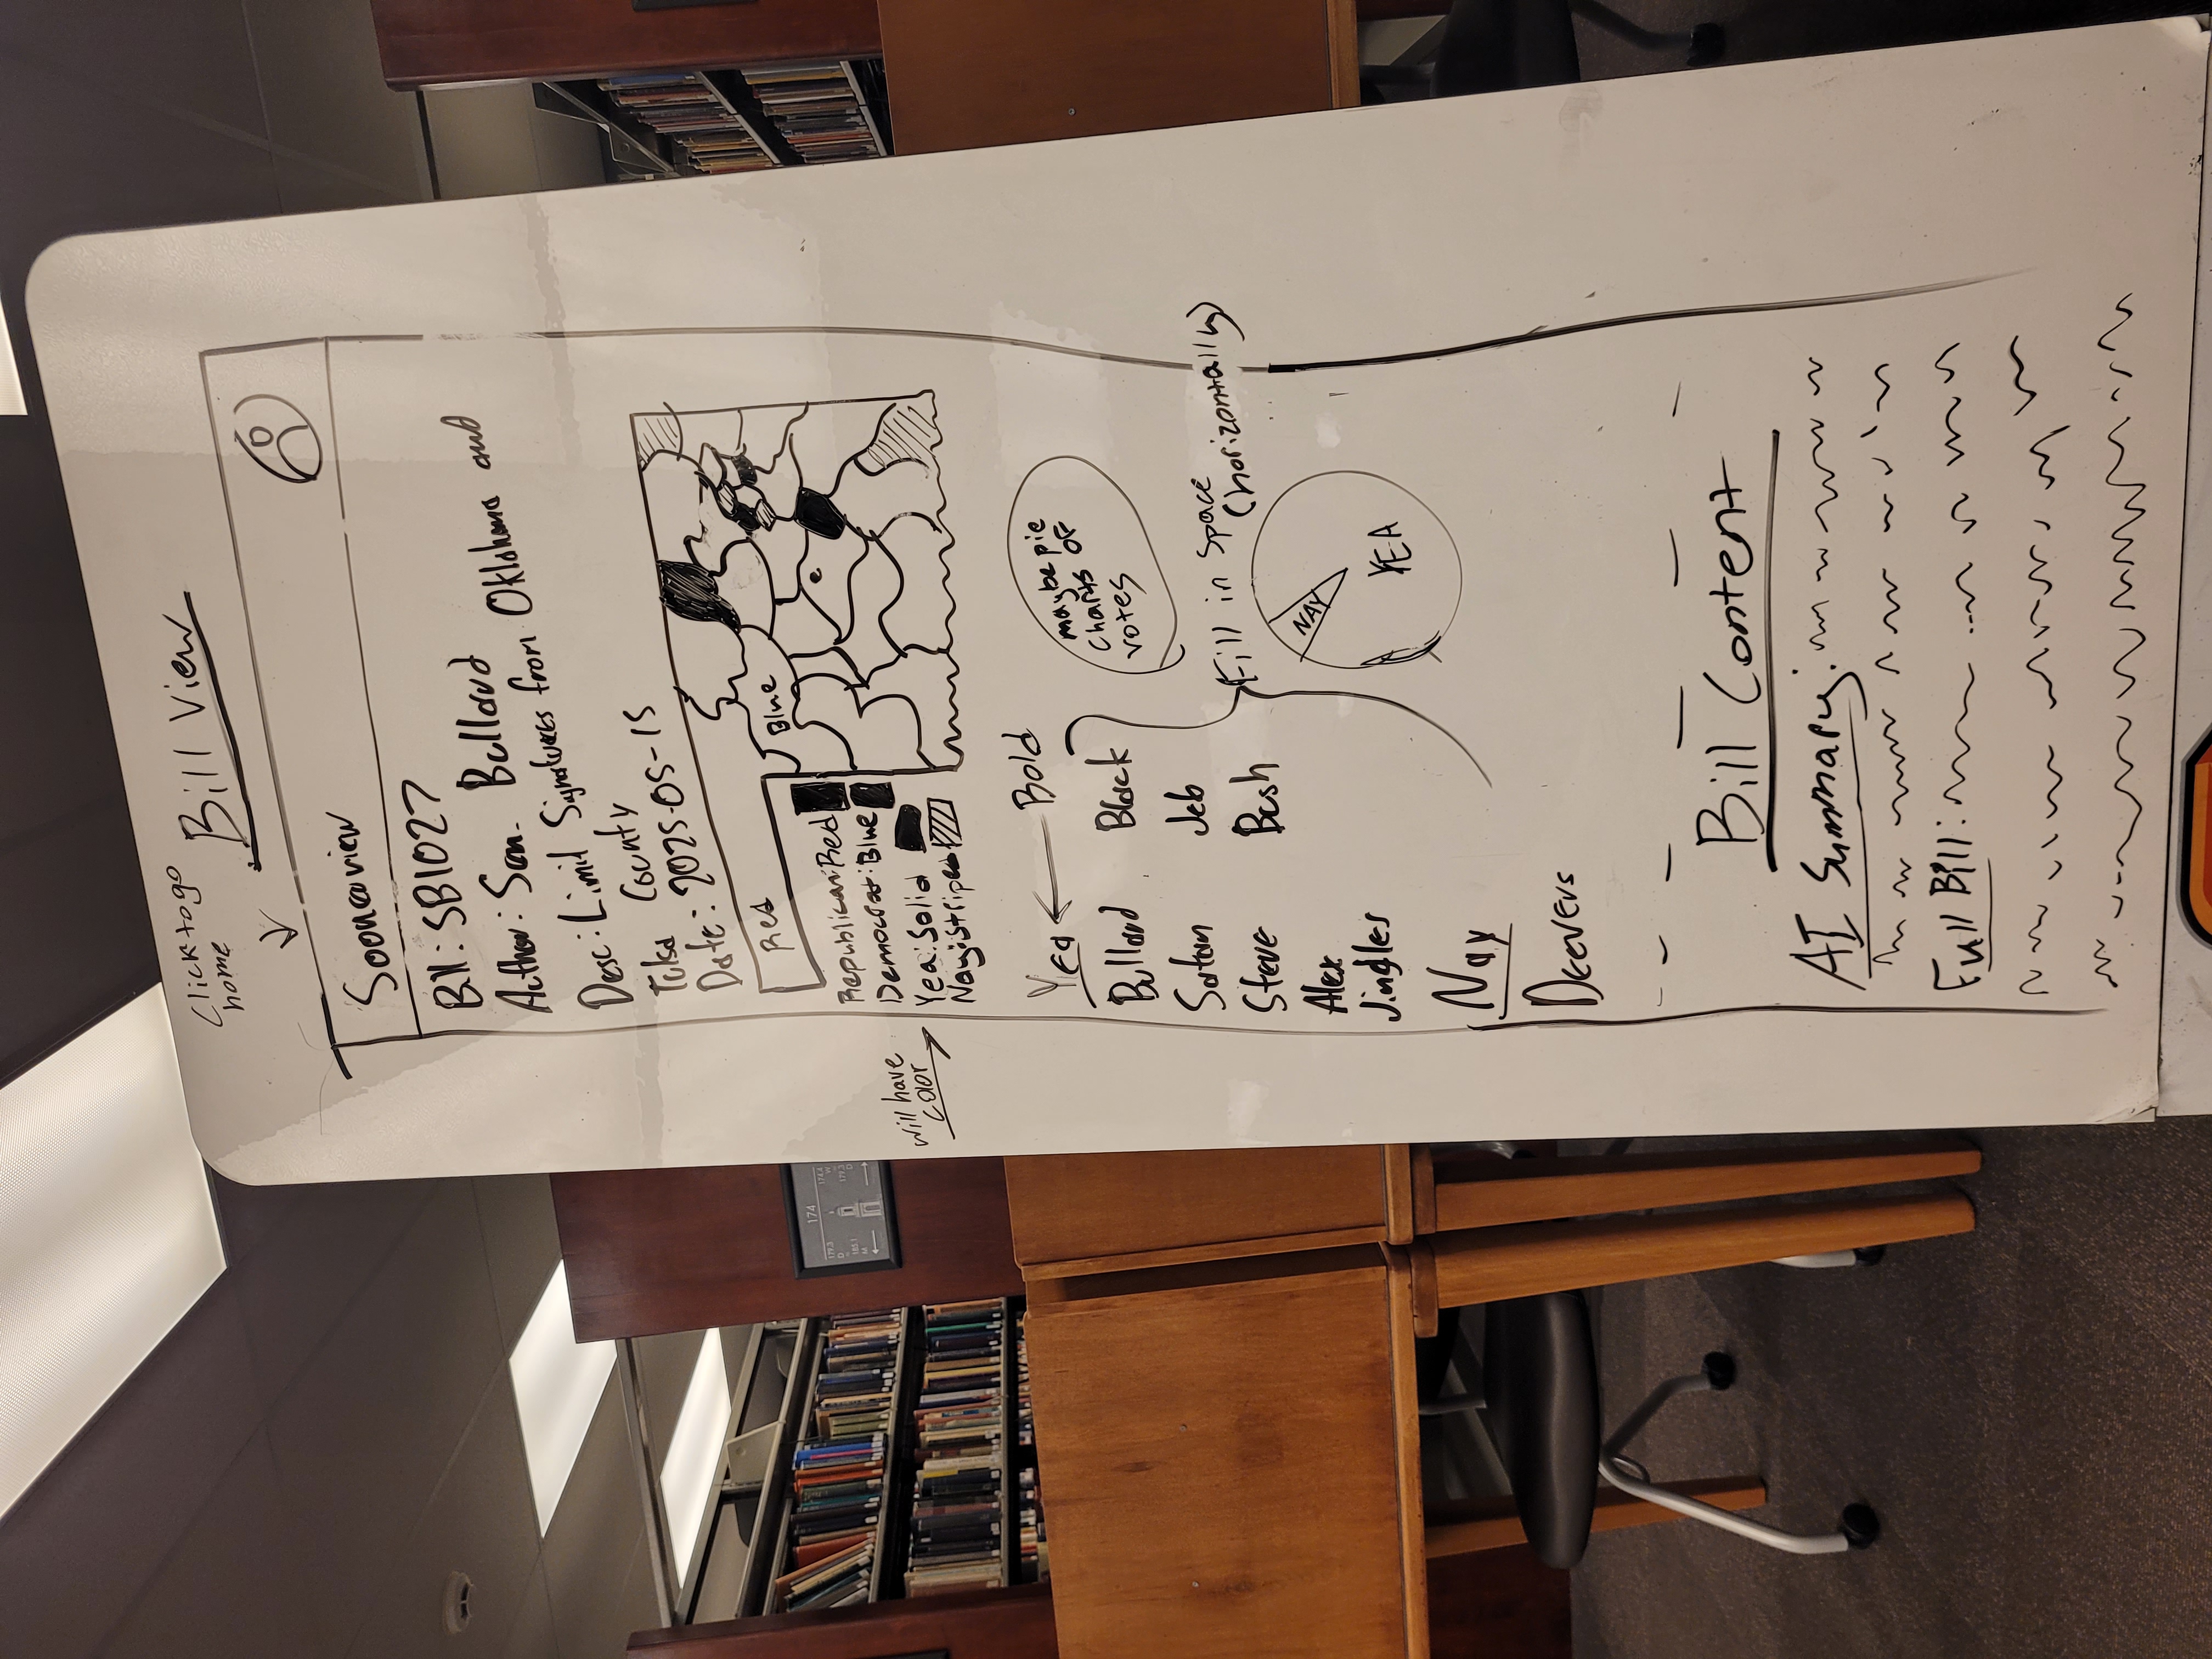 Click to go
home
Bill View
Soonerview
Bill: SB1027
Author: Sen. Bullard
Desc: Limit Signatures from Oklahoma and
Tulsa County
Date: 2025-05-15
Red
Blue
Republican: Red
Democrat: Blue
Yea: Solid
Nay: Striped
will have
color
Yea
Bold
Bullard Black
Satan Jeb
Steve Bush
Alex
Jingles
maybe pie
charts of
votes
Fill in space
(horizontally)
NAY
YEA
Nay
Deevers
Bill Content
AI Summary:
Full Bill:
174
179.3
D
185.1
M
174.4
W
179.3
D